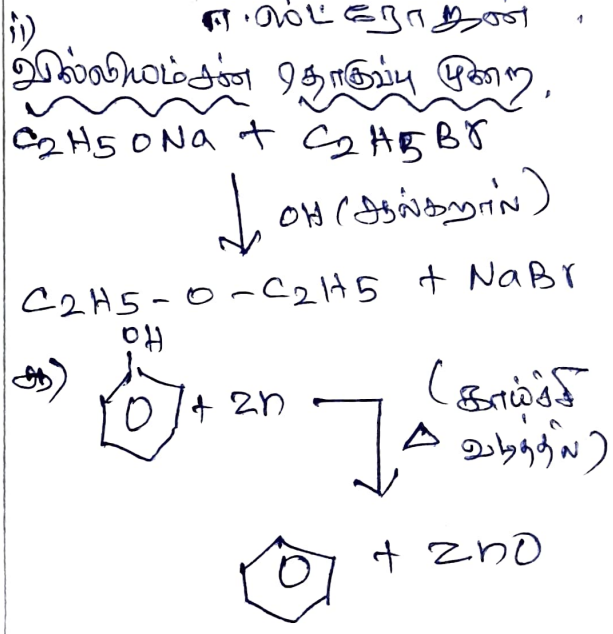 ii)
வில்லியம்சன் தொகுப்பு முறை.
C2H5ONa + C2H5Br
↓ OH (ஆல்கஹால்)
C2H5-O-C2H5 + NaBr
OH
+ zn → (காய்ச்சி
Δ வடித்தல்)
+ znO